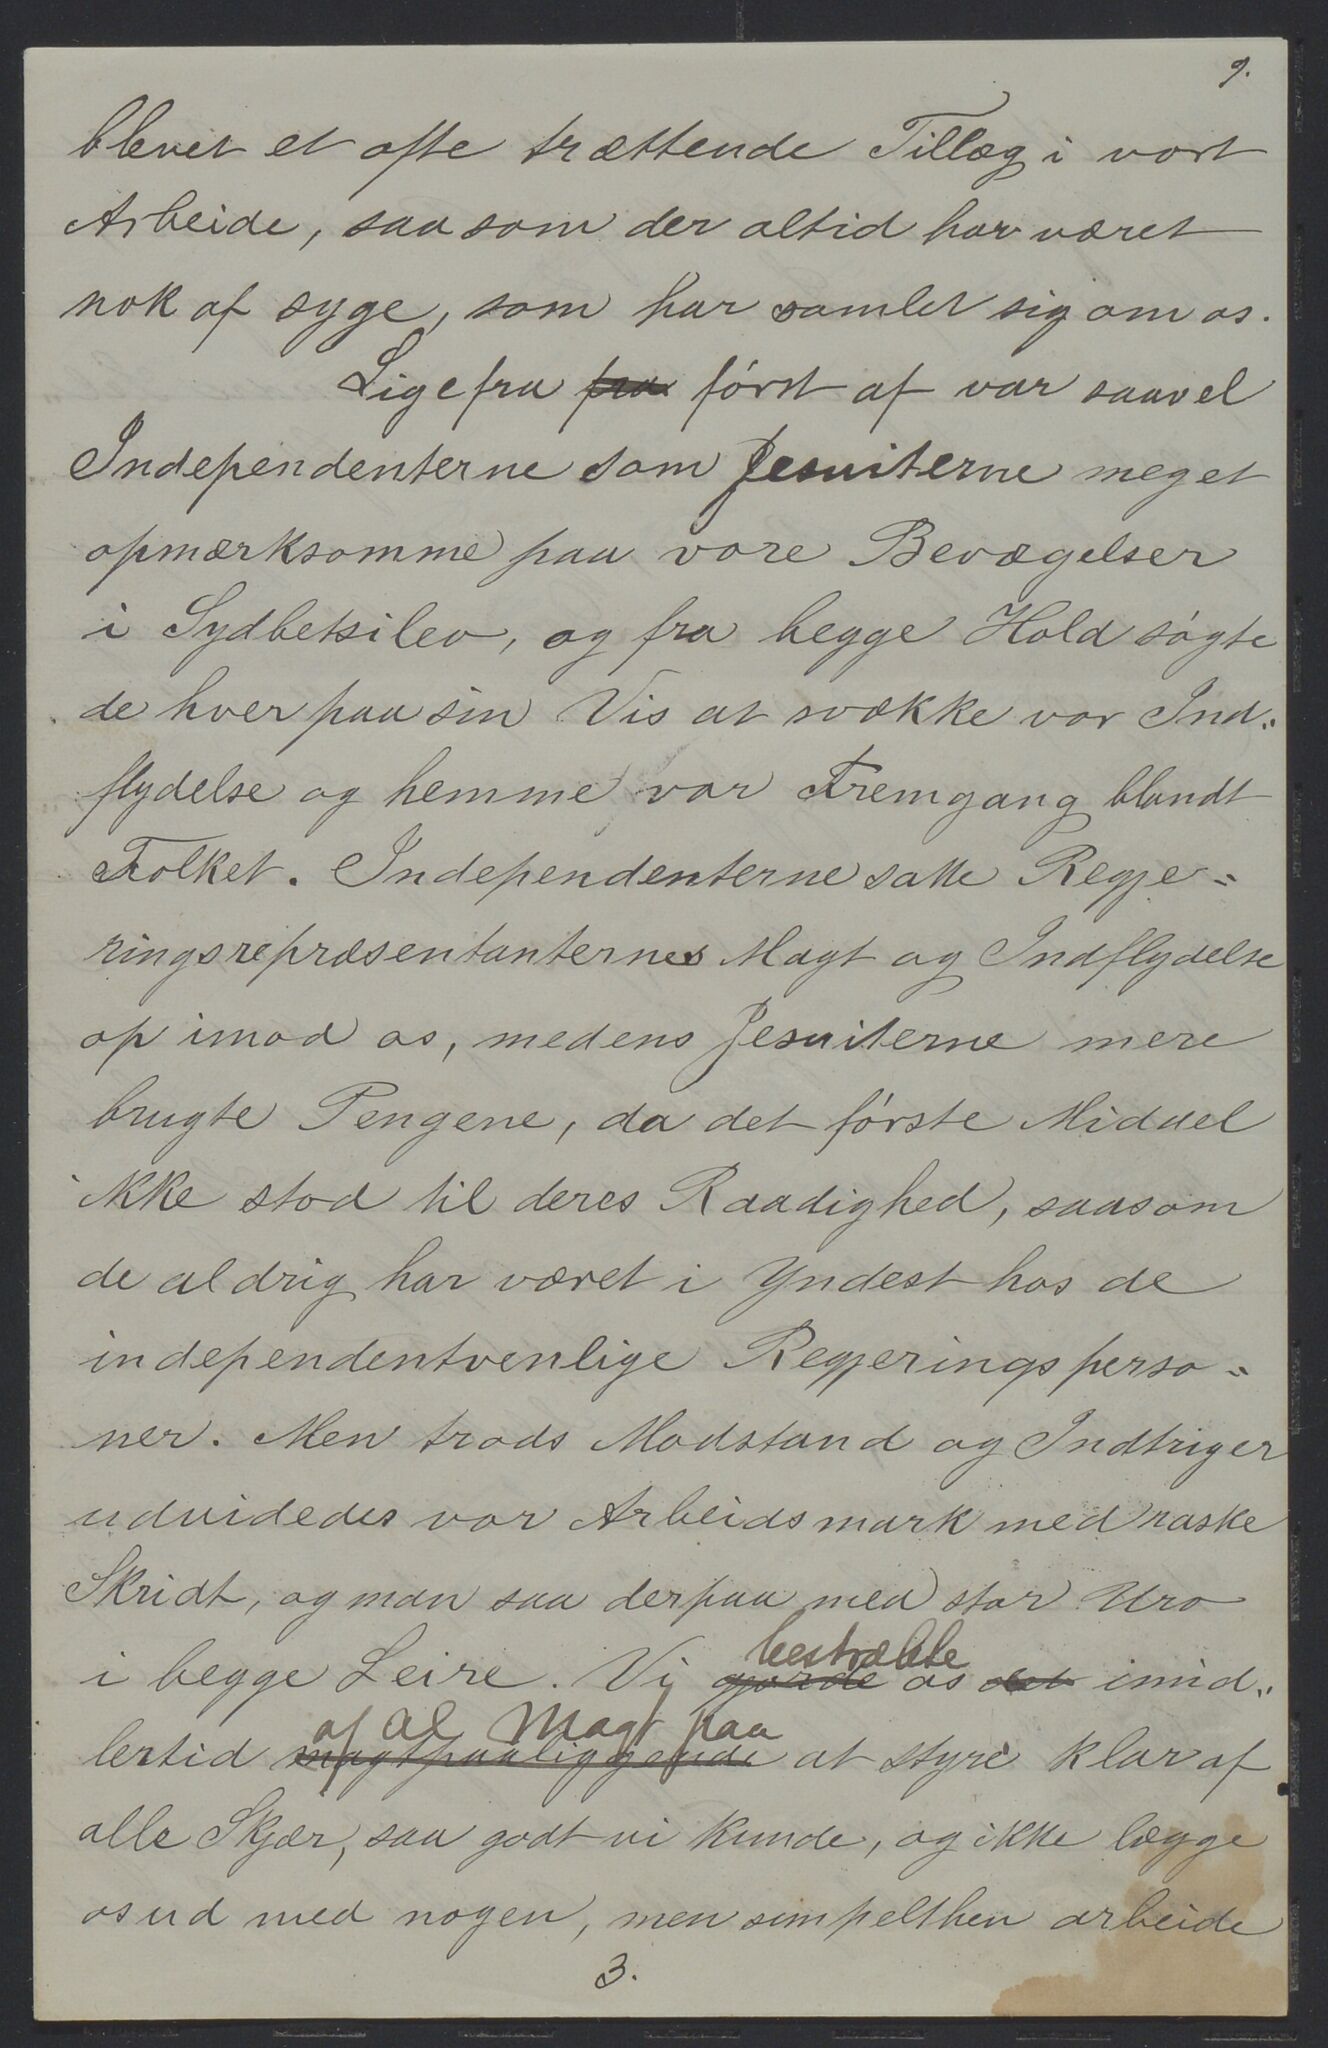 9.
blevet et ofte trættende Tillæg i vort
Arbeide, saasom der altid har været
nok af syge, som har samlet sig om os.
Lige fra fra først af var saavel
Independenterne som Jesuiterne meget
opmærksomme paa vore Bevægelser
i Sydbetsileo, og fra begge Hold søgte
de hver paa sin Vis at svække vor Ind„
flydelse og hemme vor Fremgang blandt
Folket. Independenterne satte Regje„
ringsrepræsentanternes Magt og Indflydelse
op imod os, medens Jesuiterne mere
brugte Pengene, da det første Middel
ikke stod til deres Raadighed, saasom
de aldrig har været i Yndest hos de
independentvenlige Regjeringsperso„
ner. Men trods Modstand og Indtriger
udvidedes vor Arbeidsmark med raske
Skridt, og man saa derpaa med stor Uro
bestræbte
i begge Leire. Vi gjorde os det imid„
af al Magt paa
lertid magtpaaliggende at styre klar af
alle Skjær, saa godt vi kunde, og ikke lægge
os ud med nogen, men simpelthen arbeide
3.